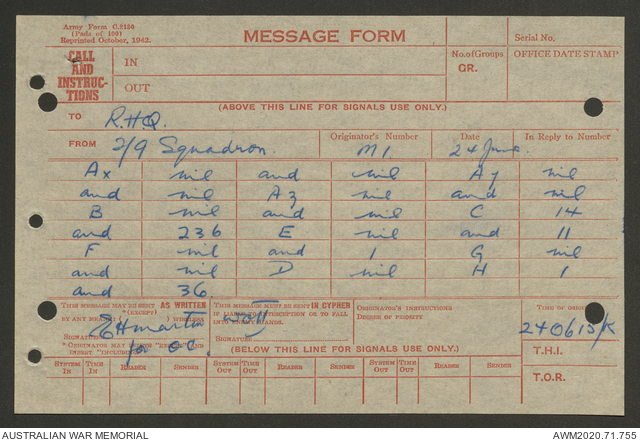 Army Form C.2150
(Pads of 100)
Reprinted October, 1942.
MESSAGE FORM
Serial No.
CALL AND INSTRUCTIONS
IN
OUT
No. of Groups
GR.
OFFICE DATE STAMP
(ABOVE THIS LINE FOR SIGNALS USE ONLY.)
TO R.H.Q.
FROM 2/9 Squadron. Originator's Number M1. Date 24 June. In Reply to Number
Ax nil and nil Ay nil
and nil Az nil and nil
B nil and nil C 14
and 236 E nil and 11
F nil and 1 G nil
and nil D nil H 1
and 36.
THIS MESSAGE MAY BE SENT AS WRITTEN
(EXCEPT)
BY ANY MEANS ( ) WIRELESS
SIGNATURE EHmartin
for OC.
THIS MESSAGE MUST BE SENT IN CYPHER
IF LIABLE TO INTERCEPTION OR TO FALL
INTO ENEMY HANDS.
SIGNATURE
ORIGINATOR'S INSTRUCTIONS
DEGREE OF PRIORITY
TIME OF ORIGIN
240615/K
T.H.I.
T.O.R.
(BELOW THIS LINE FOR SIGNALS USE ONLY.)
SYSTEM IN TIME IN READER SENDER SYSTEM OUT TIME OUT READER SENDER SYSTEM OUT TIME OUT READER SENDER
AUSTRALIAN WAR MEMORIAL
AWM2020.71.755